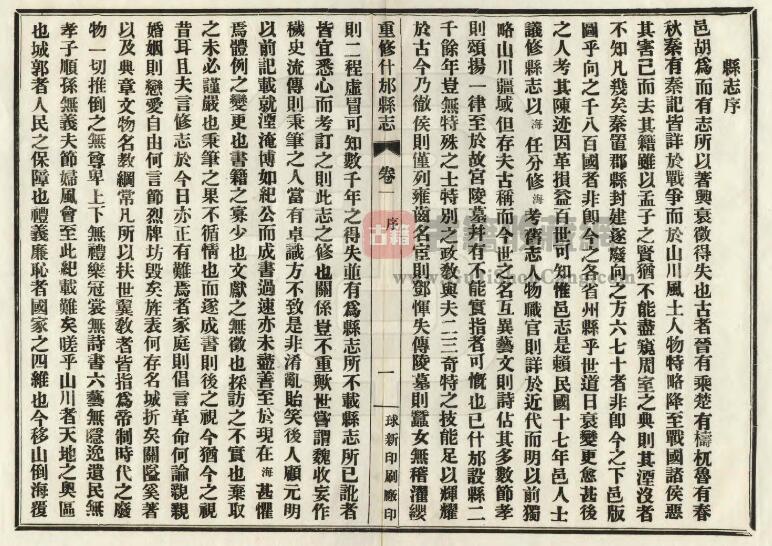 縣志序
邑胡爲而有志所以著興衰徵得失也古者晉有乘楚有檮杌魯有春
秋秦有秦記皆詳於戰爭而於山川風土人物特略降至戰國諸侯惡
其害己而去其籍雖以孟子之賢猶不能盡窺周室之典則其湮沒者
不知凡幾矣秦置郡縣封建遂廢向之方六七十者非卽今之下邑版
圖乎向之千八百國者非卽今之各省州縣乎世道日衰變更愈甚後
之人考其陳迹因革損益百世可知惟邑志是賴民國十七年邑人士
議修縣志以海任分修海考舊志人物職官則詳於近代而明以前獨
略山川疆域但存夫古稱而今世之名互異藝文則詩佔其多數節孝
則頌揚一律至於故宮陵墓并有不能實指者可慨也已什邡設縣二
千餘年豈無特殊之士特別之政敎與夫二三奇特之技能足以輝耀
於古今乃徹侯則僅列雍齒名臣則鄧惲失傳陵墓則蠶女無稽濯纓
重修什邡縣志
卷一
序
一
球新印刷廠印
則二程虛冒可知數千年之得失並有爲縣志所不載縣志所已訛者
皆宜悉心而考訂之則此志之修也關係豈不重歟世嘗謂魏收妄作
穢史流傳則秉筆之人當有卓識方不致是非淆亂貽笑後人顧元明
以前記載就湮淹博如紀公而成書過速亦未盡善至於現在海甚懼
焉體例之變更也書籍之寡少也文獻之無徵也採訪之不實也棄取
之未必謹嚴也秉筆之果不循情也而遂成書則後之視今猶今之視
昔耳且夫言修志於今日亦正有難焉者家庭則倡言革命何論親親
婚姻則戀愛自由何言節烈牌坊毀矣旌表何存名城折矣關隘奚著
以及典章文物名敎綱常凡所以扶世翼敎者皆指爲帝制時代之廢
物一切推倒之無尊卑上下無禮樂冠裳無詩書六藝無隱逸遺民無
孝子順孫無義夫節婦風會至此紀載難矣嗟乎山川者天地之奧區
也城郭者人民之保障也禮義廉恥者國家之四維也今移山倒海覆